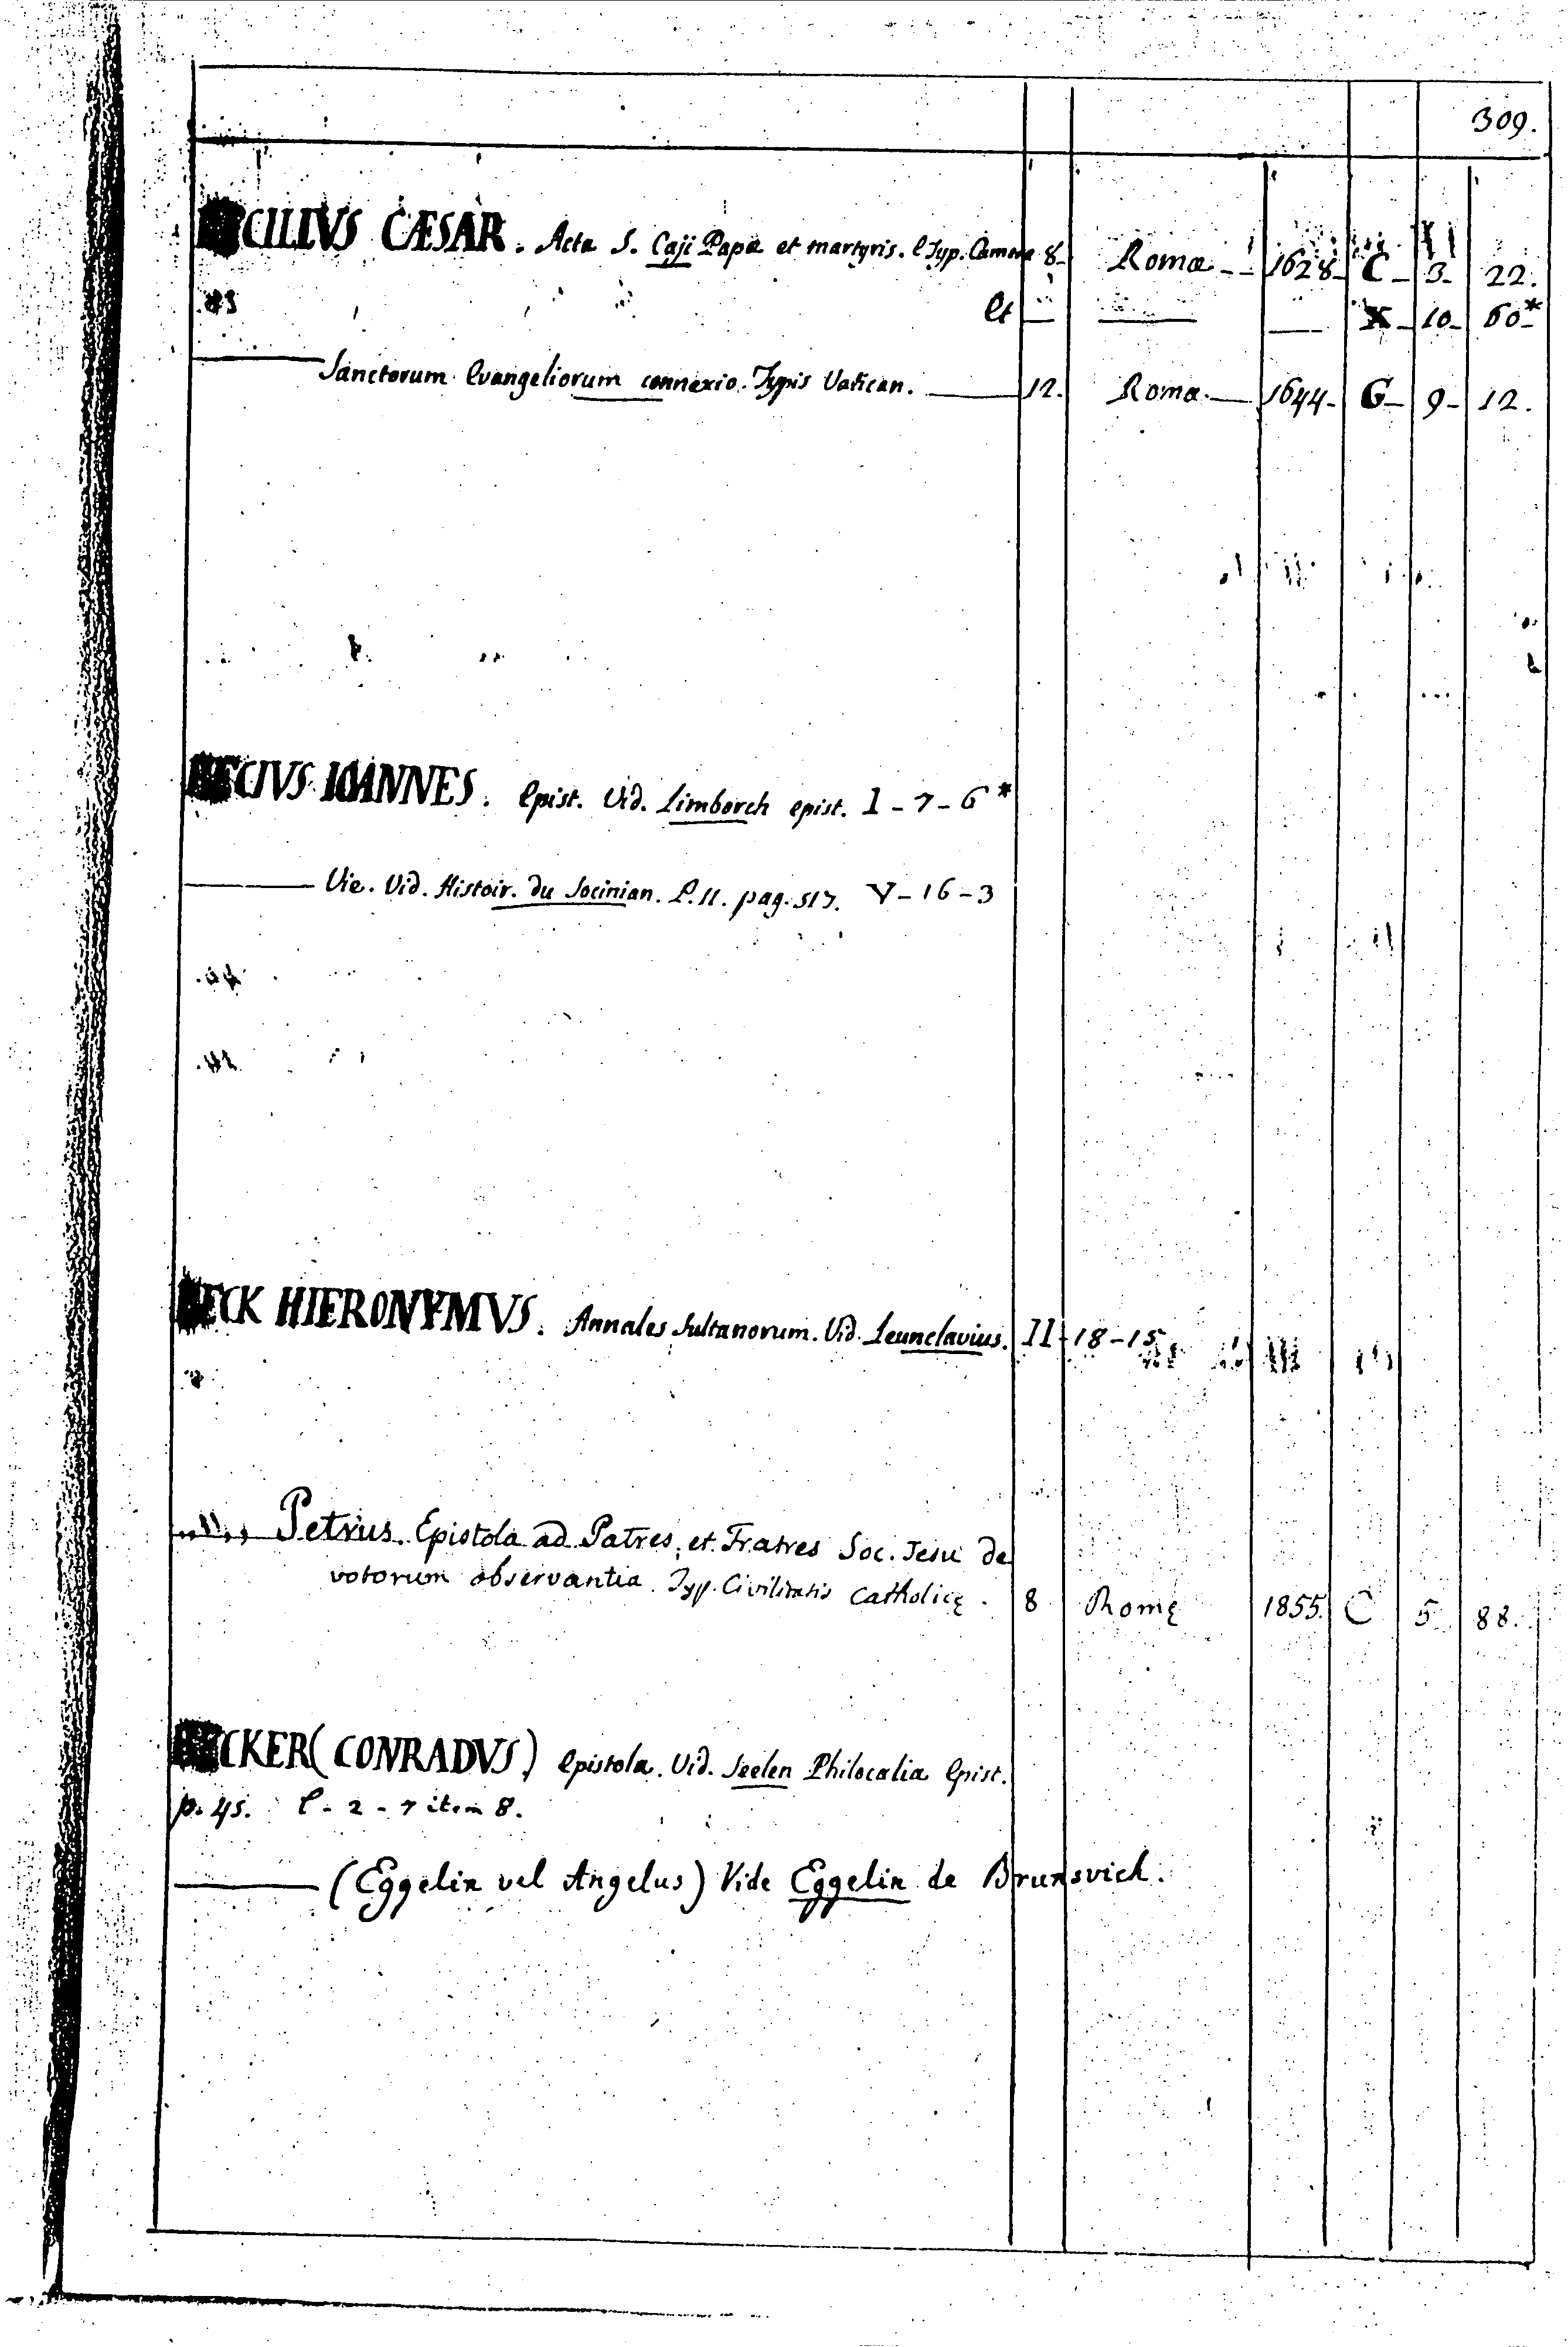 309.
BECILIVS CÆSAR. Acta S. Caji Papæ et martyris. e Typ. Cameræ 8- Romæ - - 1628- C- 3- 22.
et — — — X- 10- 60*
— Sanctorum Evangeliorum connexio. Typis Vatican. — 12. Romæ. — 1644- G- 9- 12.
BECIVS IOANNES. Epist. Vid. Limborch epist. I-7-6*
— Vie. Vid. Histoir. du Socinian. P. II. pag. 517. V-16-3
BECK HIERONYMVS. Annales Sultanorum. Vid. Leunclavius. II-18-15
Petrus. Epistola ad Patres, et Fratres Soc. Jesu de
votorum observantia. Typ. Civilitatis Catholicę. 8 Romę 1855. C 5 88.
BECKER (CONRADVS) Epistola. Vid. Seelen Philocalia Epist.
p. 45. e-2-7 item 8.
— (Eggelin vel Angelus) Vide Eggelin de Brunsvich.